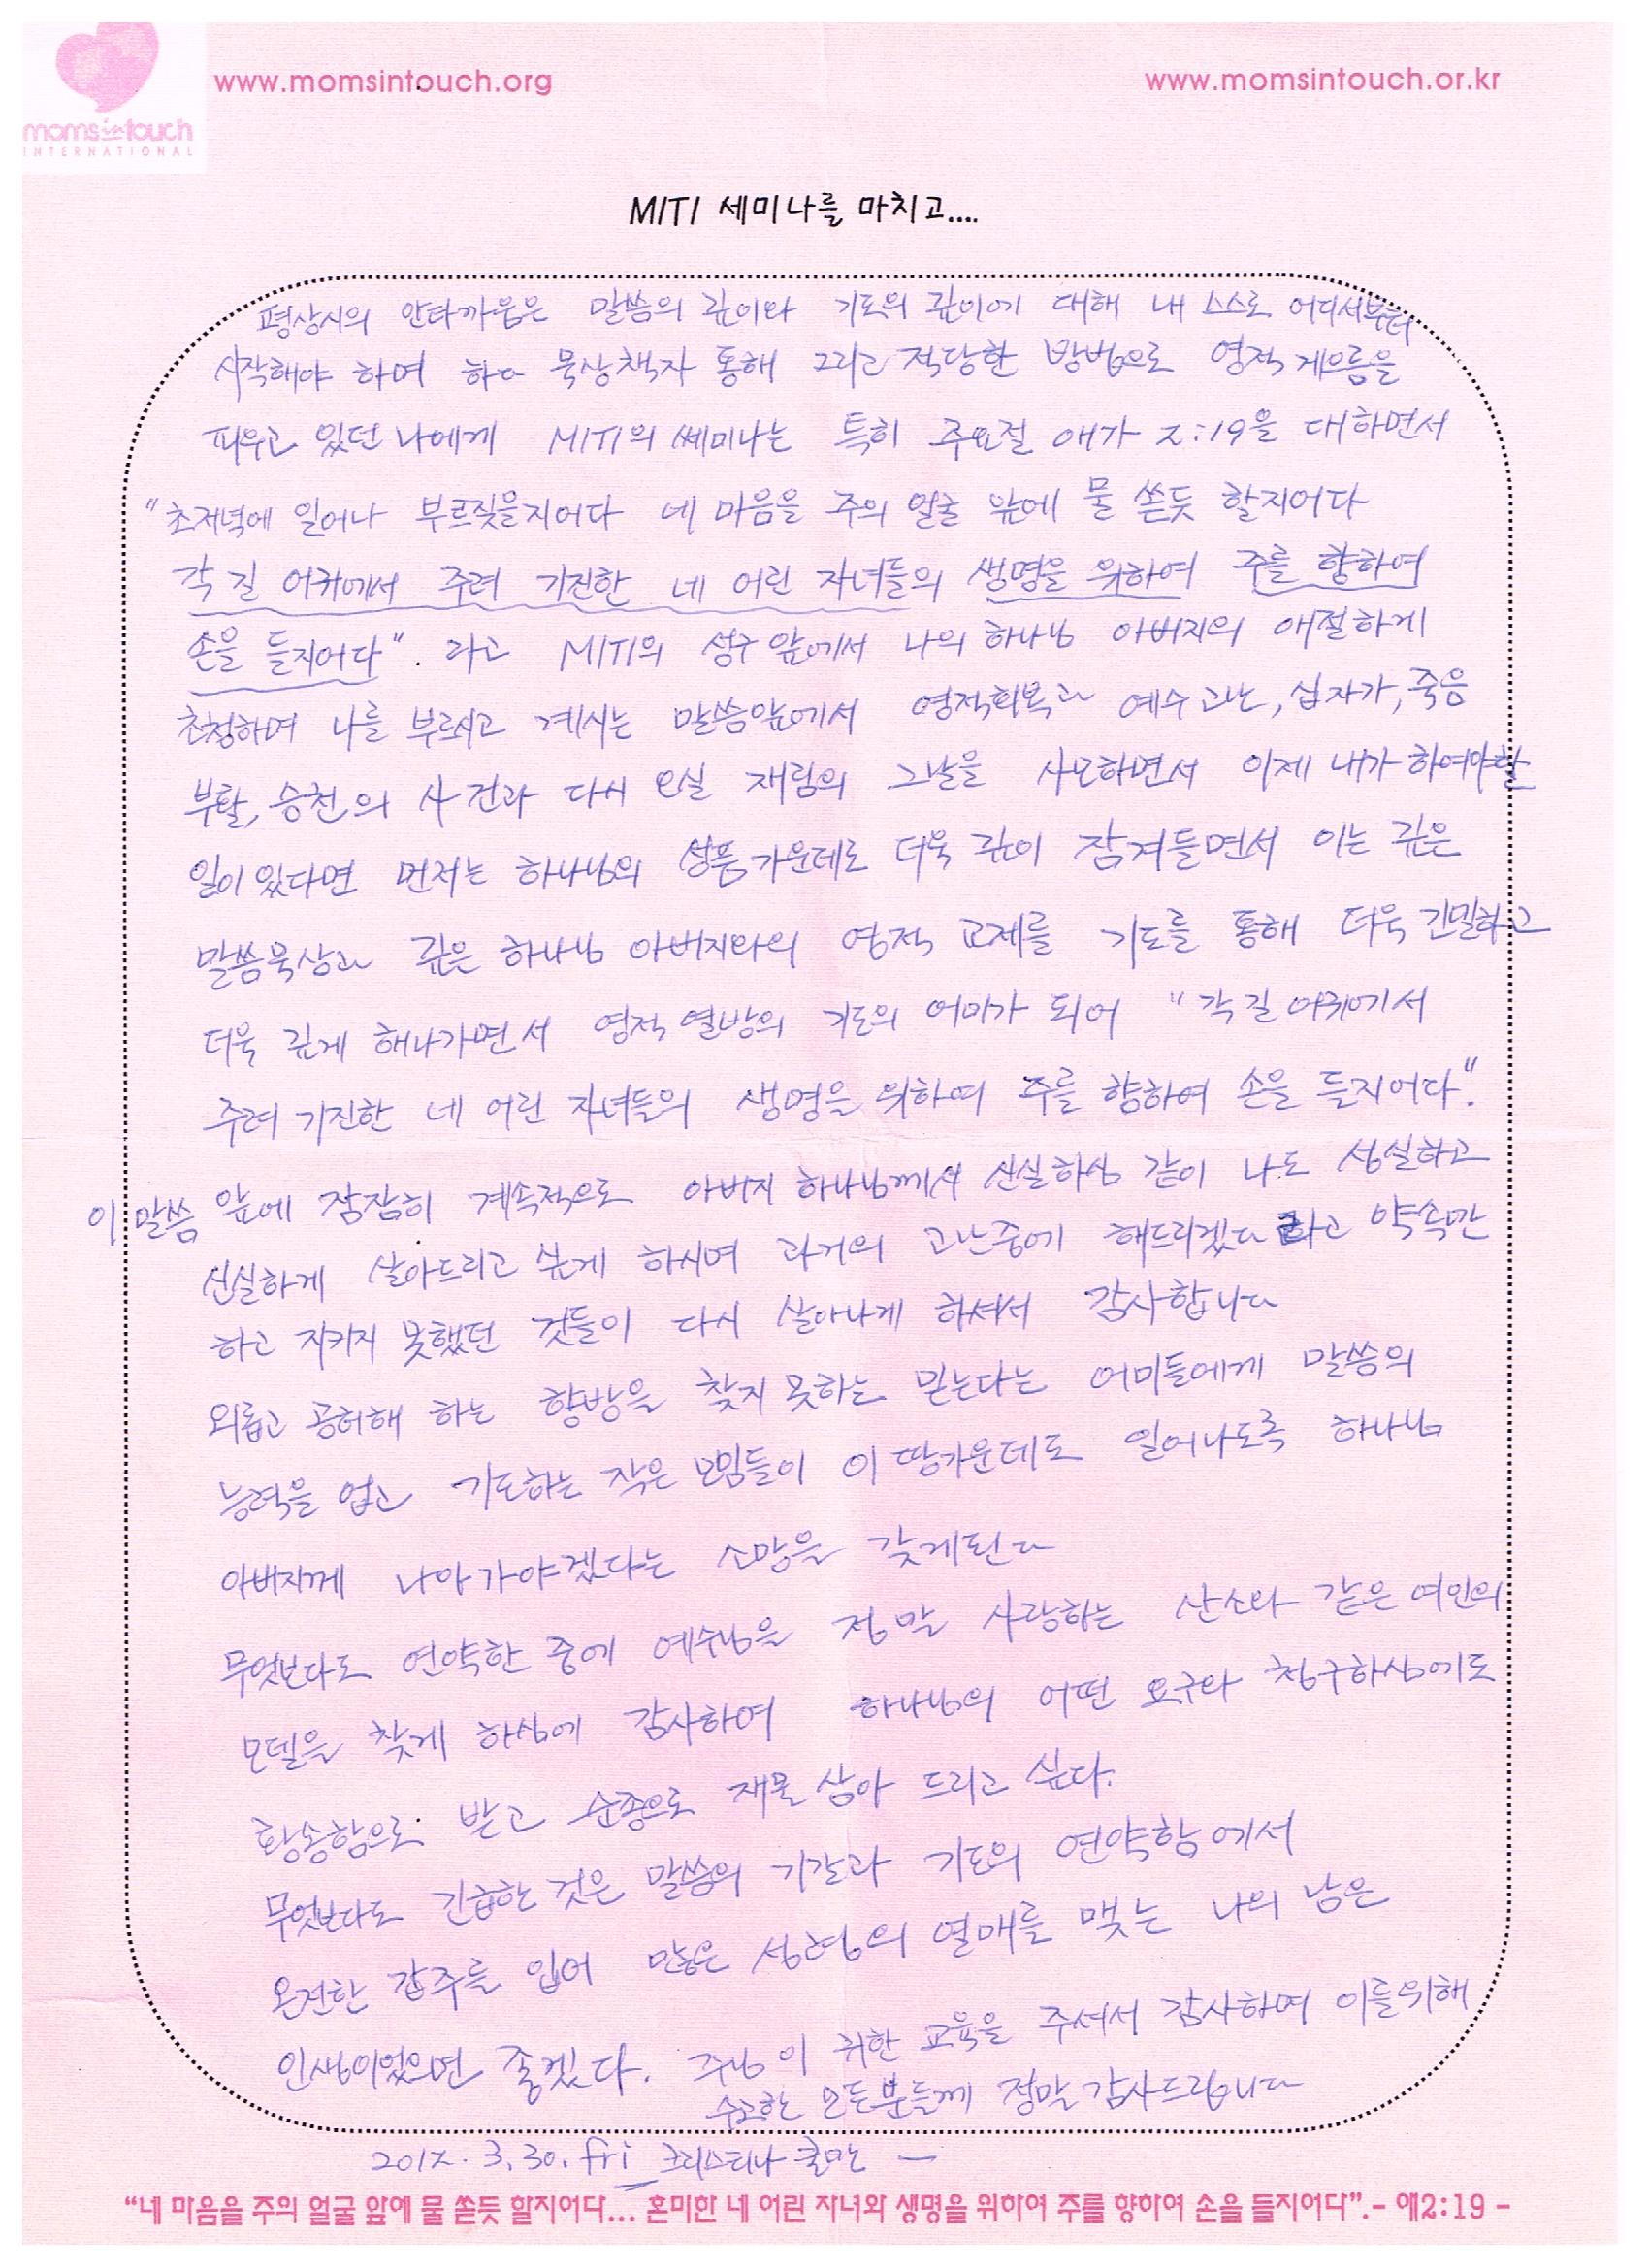 www.momsintouch.org
www.momsintouch.or.kr
momsintouch
INTERNATIONAL
MITI 세미나를 마치고....
평상시의 안타까움은 말씀의 깊이와 기도의 깊이에 대해 내 스스로 어디서부터
시작해야 하며 하는 묵상책자 통해 그리고 적당한 방법으로 영적 게으름을
피우고 있던 나에게 MITI의 쎄미나는 특히 주요절 애가 2:19을 대하면서
"초저녁에 일어나 부르짖을지어다 네 마음을 주의 얼굴 앞에 물 쏟듯 할지어다
각 길 어귀에서 주려 기진한 네 어린 자녀들의 생명을 위하여 주를 향하여
손을 들지어다". 라고 MITI의 성구 앞에서 나의 하나님 아버지의 애절하게
초청하며 나를 부르시고 계시는 말씀앞에서 영적회복과 예수 고난, 십자가, 죽음
부활, 승천의 사건과 다시 오실 재림의 그날을 사모하면서 이제 내가 하여야할
일이 있다면 먼저는 하나님의 성품가운데로 더욱 깊이 잠겨들면서 이는 깊은
말씀묵상과 깊은 하나님 아버지와의 영적 교제를 기도를 통해 더욱 긴밀하고
더욱 깊게 해나가면서 영적 열방의 기도의 어미가 되어 "각 길 어귀에서
주려 기진한 네 어린 자녀들의 생명을 위하여 주를 향하여 손을 들지어다".
이 말씀 앞에 잠잠히 계속적으로 아버지 하나님께서 신실하심 같이 나도 성실하고
신실하게 살아드리고 싶게 하시며 과거의 고난중에 해드리겠다 라고 약속만
하고 지키지 못했던 것들이 다시 살아나게 하셔서 감사합니다
외롭고 공허해 하는 향방을 찾지 못하는 믿는다는 어미들에게 말씀의
능력을 업고 기도하는 작은 모임들이 이 땅가운데도 일어나도록 하나님
아버지께 나아가야겠다는 소망을 갖게된다
무엇보다도 연약한 중에 예수님을 정말 사랑하는 산소와 같은 여인의
모델을 찾게 하심에 감사하여 하나님의 어떤 요구와 청구하심에도
황송함으로 받고 순종으로 재물 삼아 드리고 싶다.
무엇보다도 긴급한 것은 말씀의 기갈과 기도의 연약함에서
온전한 갑주를 입어 많은 성령의 열매를 맺는 나의 남은
인생이었으면 좋겠다. 주님 이 귀한 교육을 주셔서 감사하며 이를위해
수고한 모든분들께 정말 감사드립니다
2012. 3. 30. fri 크리스티나 쿨만
"네 마음을 주의 얼굴 앞에 물 쏟듯 할지어다... 혼미한 네 어린 자녀와 생명을 위하여 주를 향하여 손을 들지어다".- 애2:19 -